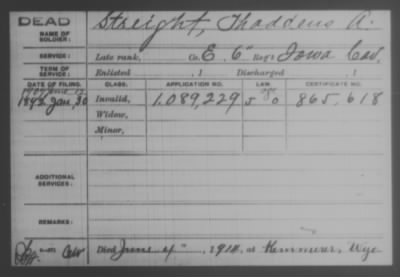 DEAD
NAME OF SOLDIER: Streight, Thaddeus A.
SERVICE: Late rank, Co. E, 6" Reg't Iowa Cav.
TERM OF SERVICE: Enlisted , 1 Discharged , 1
DATE OF FILING. CLASS. APPLICATION NO. LAW. CERTIFICATE NO.
1892 Jan, 30 Invalid, 1.089,229 865,618
Widow,
Minor,
ADDITIONAL SERVICES:
REMARKS:
Died June 4" , 1914, at Kemmerer, Wyo